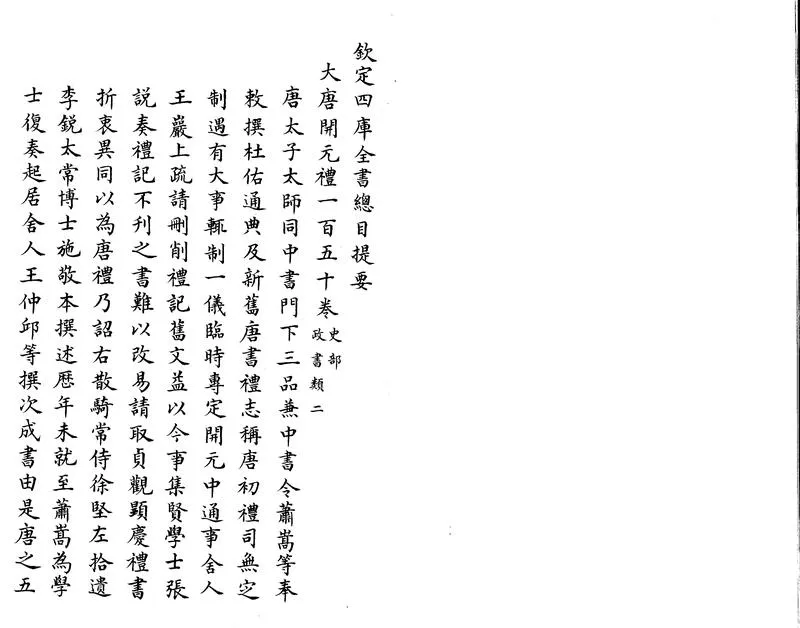 欽定四庫全書總目提要
大唐開元禮一百五十卷
史部
政書類二
唐太子太師同中書門下三品兼中書令蕭嵩等奉
敕撰杜佑通典及新舊唐書禮志稱唐初禮司無定
制遇有大事輒制一儀臨時專定開元中通事舍人
王巖上疏請刪削禮記舊文益以今事集賢學士張
說奏禮記不刊之書難以改易請取貞觀顯慶禮書
折衷異同以為唐禮乃詔右散騎常侍徐堅左拾遺
李銳太常博士施敬本撰述歷年未就至蕭嵩為學
士復奏起居舍人王仲邱等撰次成書由是唐之五